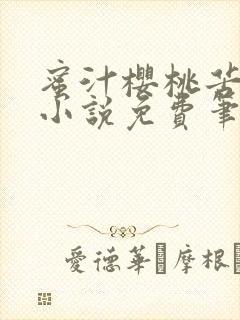 蜜汁櫻桃苦
小說免費筆
愛德華 摩根